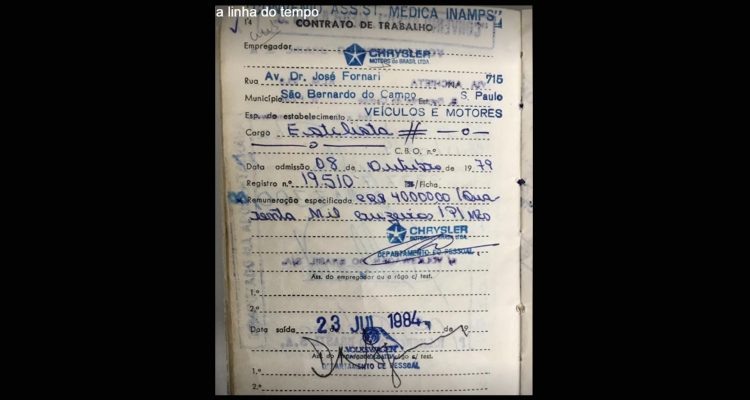 a linha do tempo
ASSIST. MÉDICA INAMPS
14
CONTRATO DE TRABALHO
Empregador
CHRYSLER
MOTORS do BRASIL LTDA.
Rua Av. Dr. José Fornari 715
Município São Bernardo do Campo Est. S. Paulo
Esp. do estabelecimento VEÍCULOS E MOTORES
Cargo Estilista
C.B.O. n.º
Data admissão 08 de Outubro de 1979
Registro n.º 19510 /Ficha
Remuneração especificada 4000000 (Qua
renta Mil cruzeiros) P/ Mês
CHRYSLER
MOTORS do BRASIL LTDA.
DEPARTAMENTO DE PESSOAL
Ass. do empregador ou a rôgo c/ test.
1.º
2.º
Data saída 23 JUL 1984 de 19
VOLKSWAGEN
Ass. do empregador ou a rôgo c/ test.
DEPARTAMENTO DE PESSOAL
1.º
2.º